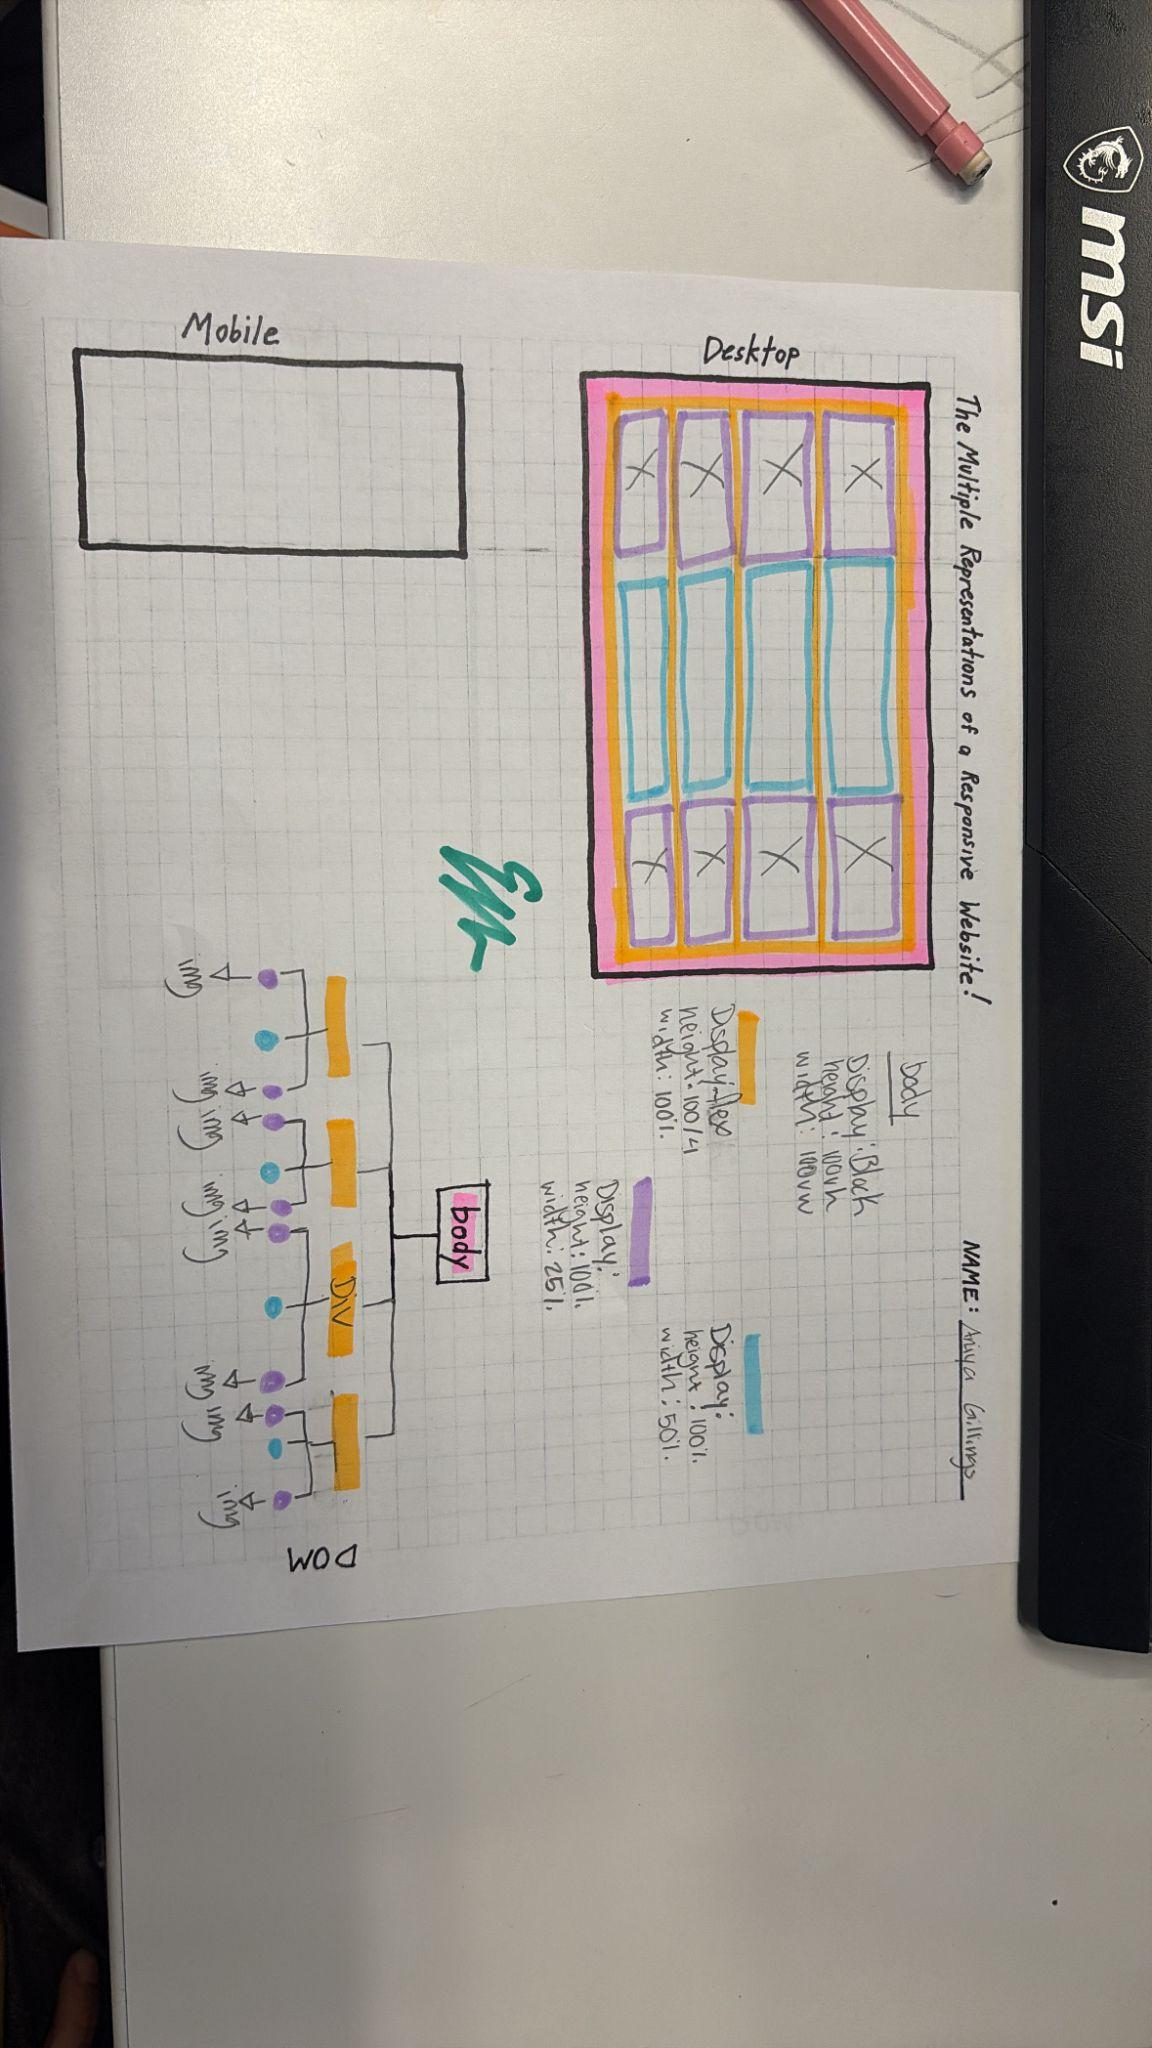 msi
The Multiple Representations of a Responsive Website!
NAME: Aniya Gillings
Desktop
body
Display: Block
height: 100vh
width: 100vw
Display: flex
height: 100/4
width: 100%
Display:
height: 100%
width: 25%
Display:
height: 100%
width: 50%
Mobile
body
Div
img
img
img
img
img
img
img
img
DOM